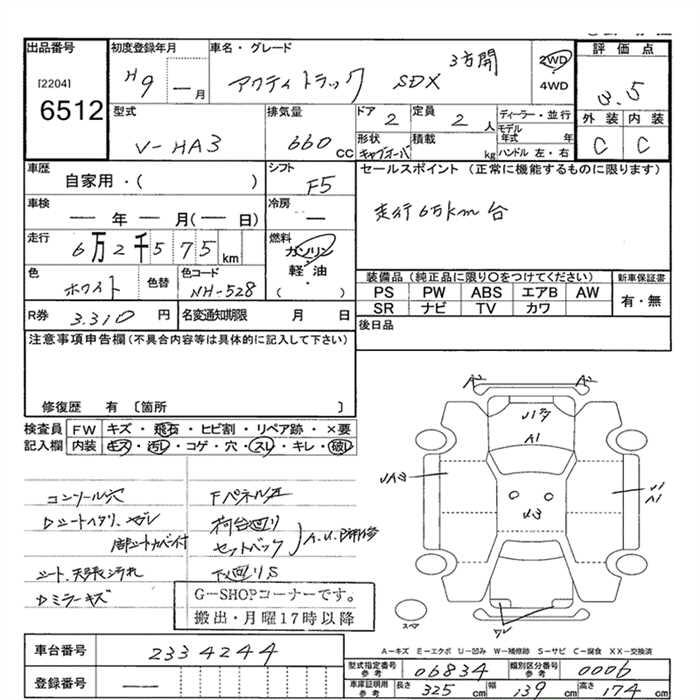 出品番号 初度登録年月 車名・グレード 評価点
[2204] 6512 H9 年 一 月 アクティトラック SDX 3方開 2WD 4WD 3.5
型式 V-HA3 排気量 660 CC ドア 2 定員 2 人 ディーラー・並行 外装 内装
形状 キャブオーバ 積載 kg モデル年式 年 ハンドル 左・右 C C
車歴 自家用・( ) シフト F5 セールスポイント (正常に機能するものに限ります)
車検 ― 年 ― 月(― 日) 冷房 ― 走行6万km台
走行 6万2千575km 燃料 ガソリン 軽油 ( )
色 ホワイト 色替 色コード NH-528 装備品(純正品に限り○をつけてください) 新車保証書
PS PW ABS エアB AW 有・無
SR ナビ TV カワ
R券 3.310 円 名変通知期限 月 日 後日品
注意事項申告欄(不具合内容等は具体的に記入して下さい)
修復歴 有 〔箇所 〕
検査員記入欄 FW キズ・飛石・ヒビ割・リペア跡・×要
内装 キズ・汚レ・コゲ・穴・スレ・キレ・破レ
コンソール穴
シート、天張汚れ
Dミラーキズ
荷台廻り
セットバック
下廻りS
G-SHOPコーナーです。
搬出・月曜17時以降
A2 A2
A1
U3
U1
A1
スペア
A-キズ E-エクボ U-凹み W-補修跡 S-サビ C-腐食 XX-交換済
車台番号 2334244
登録番号 ―
型式指定番号 参考 06834 類別区分番号 参考 0006
車庫証明用 参考 長さ 325 cm 幅 139 cm 高さ 174 cm